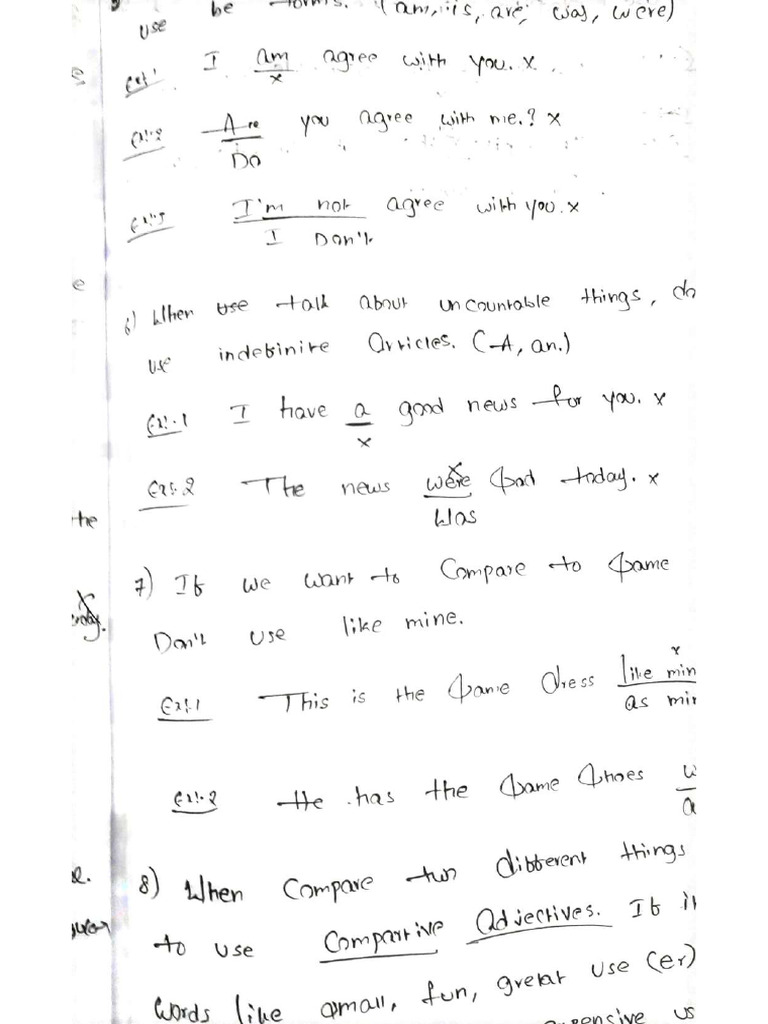 use be forms. (am, is, are, was, were)
Ex:1 I am agree with you. x
x
Ex:2 Are you agree with me.? x
Do
Ex:3 I'm not agree with you. x
I Don't
e
6) When use talk about uncountable things, do
use indefinite Articles. (A, an.)
Ex:-1 I have a good news for you. x
x
Ex:2 The news were bad today. x
the was
7) If we want to compare to same
Don't use like mine.
x
Ex:1 This is the same dress like min
as min
Ex:-2 He has the same shoes w
a
8) When compare two different things
to use Compartive adjectives. If it
words like small, fun, great use (er)
expensive us